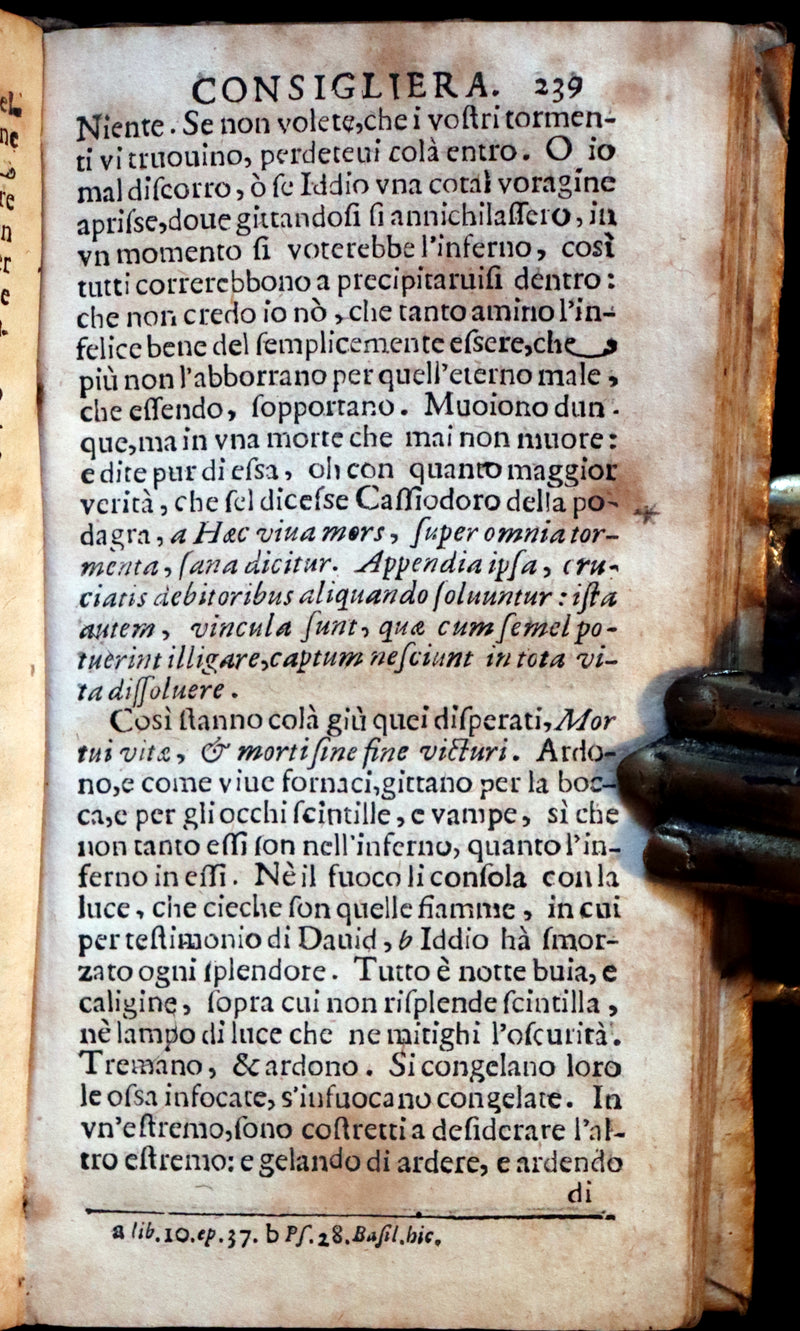 CONSIGLIERA. 239
Niente. Se non volete,che i voſtri tormen-
ti vi truouino, perdeteui colà entro. O io
mal diſcorro, ò ſe Iddio vna cotal voragine
apriſse,doue gittandoſi ſi annichilaſſero, in
vn momento ſi voterebbe l'inferno, così
tutti correrebbono a precipitaruiſi dentro:
che non credo io nò, che tanto amino l'in-
felice bene del ſemplicemente eſsere,che
più non l'abborrano per quell'eterno male,
che eſſendo, ſopportano. Muoiono dun-
que,ma in vna morte che mai non muore:
e dite pur di eſsa, oh con quanto maggior
verità, che ſel diceſse Caſſiodoro della po-
dagra, a Hæc viua mors, ſuper omnia tor-
menta, ſana dicitur. Appendia ipſa, cru-
ciatis debitoribus aliquando ſoluuntur: iſta
autem, vincula ſunt, quæ cum ſemel po-
tuerint illigare,captum neſciunt in tota vi-
ta diſſoluere.
Così ſtanno colà giù quei diſperati,Mor
tui vitæ, & morti ſine fine victuri. Ardo-
no,e come viue fornaci,gittano per la boc-
ca,e per gli occhi ſcintille, e vampe, sì che
non tanto eſſi ſon nell'inferno, quanto l'in-
ferno in eſſi. Nè il fuoco li conſola con la
luce, che cieche ſon quelle fiamme, in cui
per teſtimonio di Dauid, b Iddio hà ſmor-
zato ogni ſplendore. Tutto è notte buia, e
caligine, ſopra cui non riſplende ſcintilla,
nè lampo di luce che ne mitighi l'oſcurità.
Tremano, & ardono. Si congelano loro
le oſsa infocate, s'infuocano congelate. In
vn'eſtremo,ſono coſtretti a deſiderare l'al-
tro eſtremo: e gelando di ardere, e ardendo
di
a lib.10.ep.37. b Pſ.28.Baſil.hic.